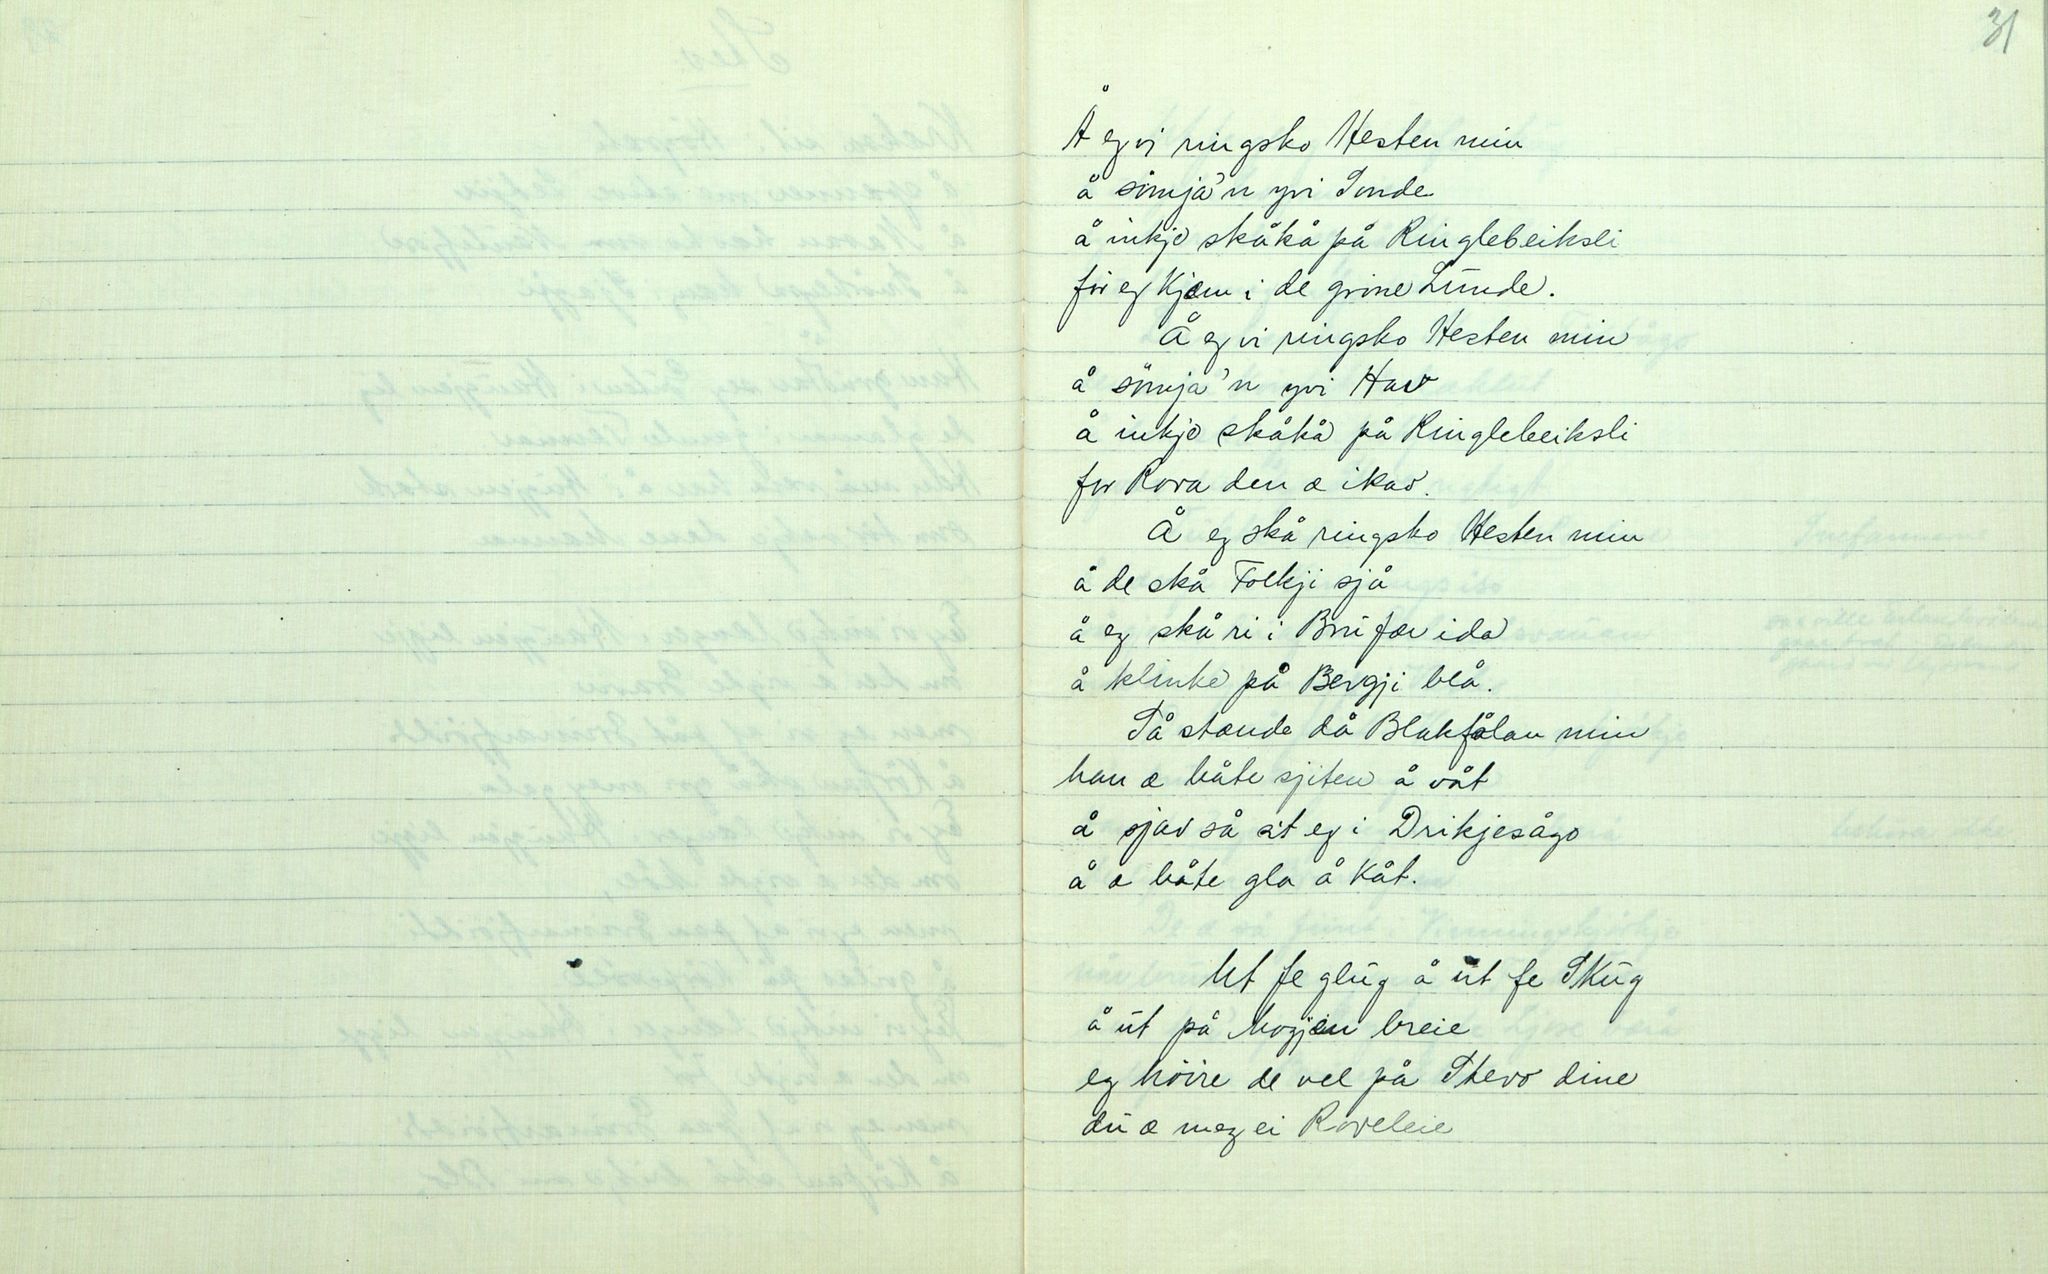 31
Å eg vi ringsko Hesten min
å sömja'n yvi Sonde
å inkje skåkå på Ringlebeiksli
för eg Kjæm i de gröne Lunde.
Å eg vi ringsko Hesten min
å sömja'n yvi Hav
å inkje skåkå på Ringlebeiksli
for Rova den æ ikav.
Å eg skå ringsko Hesten min
å de skå Folkji sjå
å eg skå ri i Brufæridå
å klinke på Bergji blå.
Tå stænde då Blakfålan min
han æ båte sjiten å våt
å sjav så sit eg i Drikjesågo
å æ båte gla å Kåt.
Ut fe glug å ut fe Skug
å ut på hogjen breie
eg höire de vel på Stevo dine
du æ meg ei Roveleie